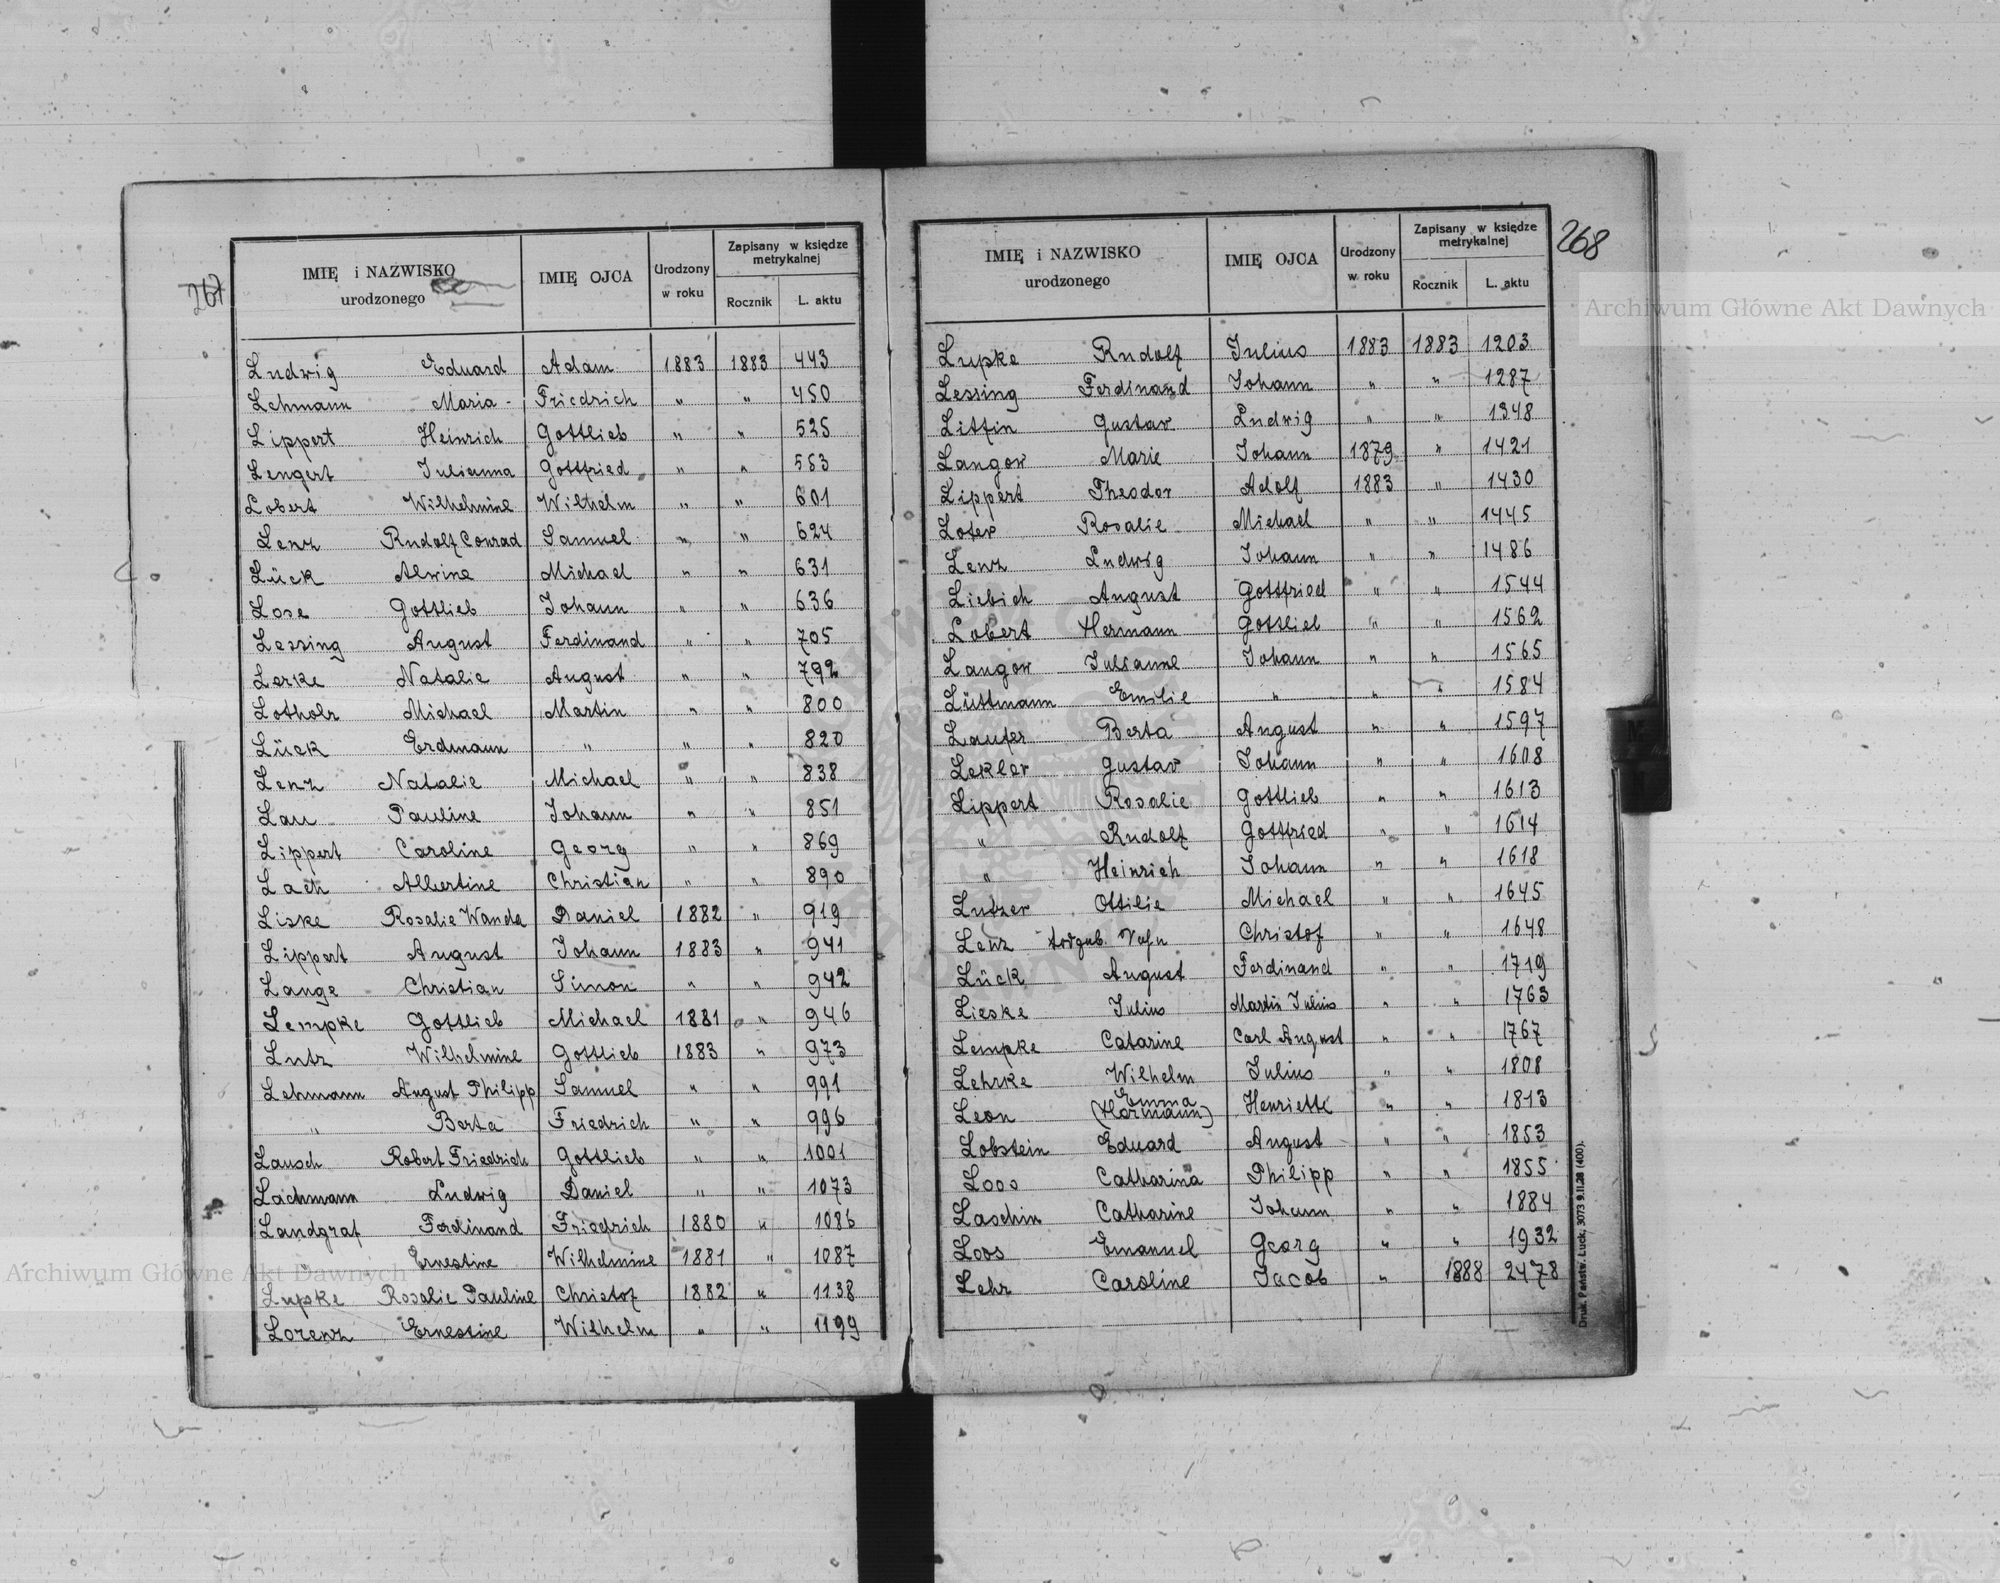 267
IMIĘ i NAZWISKO urodzonego | IMIĘ OJCA | Urodzony w roku | Zapisany w księdze metrykalnej
Rocznik | L. aktu
Ludwig Eduard | Adam | 1883 | 1883 | 443
Lehmann Maria | Friedrich | " | " | 450
Lippert Heinrich | Gottlieb | " | " | 525
Lengert Julianna | Gottfried | " | " | 583
Lobert Wilhelmine | Wilhelm | " | " | 601
Lenz Rudolf Conrad | Samuel | " | " | 624
Lück Alwine | Michael | " | " | 631
Lose Gottlieb | Johann | " | " | 636
Lessing August | Ferdinand | " | " | 705
Lerke Natalie | August | " | " | 792
Lotholz Michael | Martin | " | " | 800
Lück Erdmann | " | " | " | 820
Lenz Natalie | Michael | " | " | 838
Lau Pauline | Johann | " | " | 851
Lippert Caroline | Georg | " | " | 869
Lach Albertine | Christian | " | " | 890
Liske Rosalie Wanda | Daniel | 1882 | " | 919
Lippert August | Johann | 1883 | " | 941
Lange Christian | Simon | " | " | 942
Lempke Gottlieb | Michael | 1881 | " | 946
Lutz Wilhelmine | Gottlieb | 1883 | " | 973
Lehmann August Philipp | Samuel | " | " | 991
" Berta | Friedrich | " | " | 996
Lausch Robert Friedrich | Gottlieb | " | " | 1001
Lachmann Ludwig | Daniel | " | " | 1073
Landgraf Ferdinand | Friedrich | 1880 | " | 1086
" Ernestine | Wilhelmine | 1881 | " | 1087
Lupke Rosalie Pauline | Christof | 1882 | " | 1138
Lorenz Ernestine | Wilhelm | " | " | 1199
268
IMIĘ i NAZWISKO urodzonego | IMIĘ OJCA | Urodzony w roku | Zapisany w księdze metrykalnej
Rocznik | L. aktu
Lupke Rudolf | Julius | 1883 | 1883 | 1203
Lessing Ferdinand | Johann | " | " | 1287
Litfin Gustav | Ludwig | " | " | 1348
Langow Marie | Johann | 1879 | " | 1421
Lippert Theodor | Adolf | 1883 | " | 1430
Lofer Rosalie | Michael | " | " | 1445
Lenz Ludwig | Johann | " | " | 1486
Liebich August | Gottfried | " | " | 1544
Lobert Hermann | Gottlieb | " | " | 1562
Langow Julianne | Johann | " | " | 1565
Lüttmann Emilie | " | " | " | 1584
Laufer Berta | August | " | " | 1597
Lekler Gustav | Johann | " | " | 1608
Lippert Rosalie | Gottlieb | " | " | 1613
" Rudolf | Gottfried | " | " | 1614
" Heinrich | Johann | " | " | 1618
Lutzer Ottilie | Michael | " | " | 1645
Lenz todgeb. | Christof | " | " | 1648
Lück August | Ferdinand | " | " | 1719
Lieske Julius | Martin Julius | " | " | 1763
Lempke Catarine | Carl August | " | " | 1767
Lehrke Wilhelm | Julius | " | " | 1808
Leon Emma (Hermann) | Henriette | " | " | 1813
Lobstein Eduard | August | " | " | 1853
Loos Catharina | Philipp | " | " | 1855
Laschin Catharine | Johann | " | " | 1884
Loos Emanuel | Georg | " | " | 1932
Lehr Caroline | Jacob | " | 1888 | 2478
Druk. Państw. Łuck, 3073 9.II.28 (400).
Archiwum Główne Akt Dawnych
Archiwum Główne Akt Dawnych